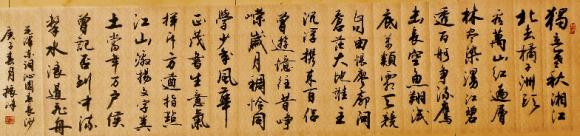 獨立寒秋湘江
北去橘子洲头
看萬山紅遍層
林尽染漫江碧
透百舸争流鹰
击長空魚翔浅
底萬類霜天競
自由悵寥廓問
蒼茫大地誰主
沉浮携来百侣
曾遊憶往昔崢
嶸歲月稠恰同
學少年風華
正茂書生意氣
揮斥方遒指點
江山激揚文字糞
土當年万户侯
曾記否到中流
擊水浪遏飛舟
毛泽東词沁园春長沙
庚子夏月